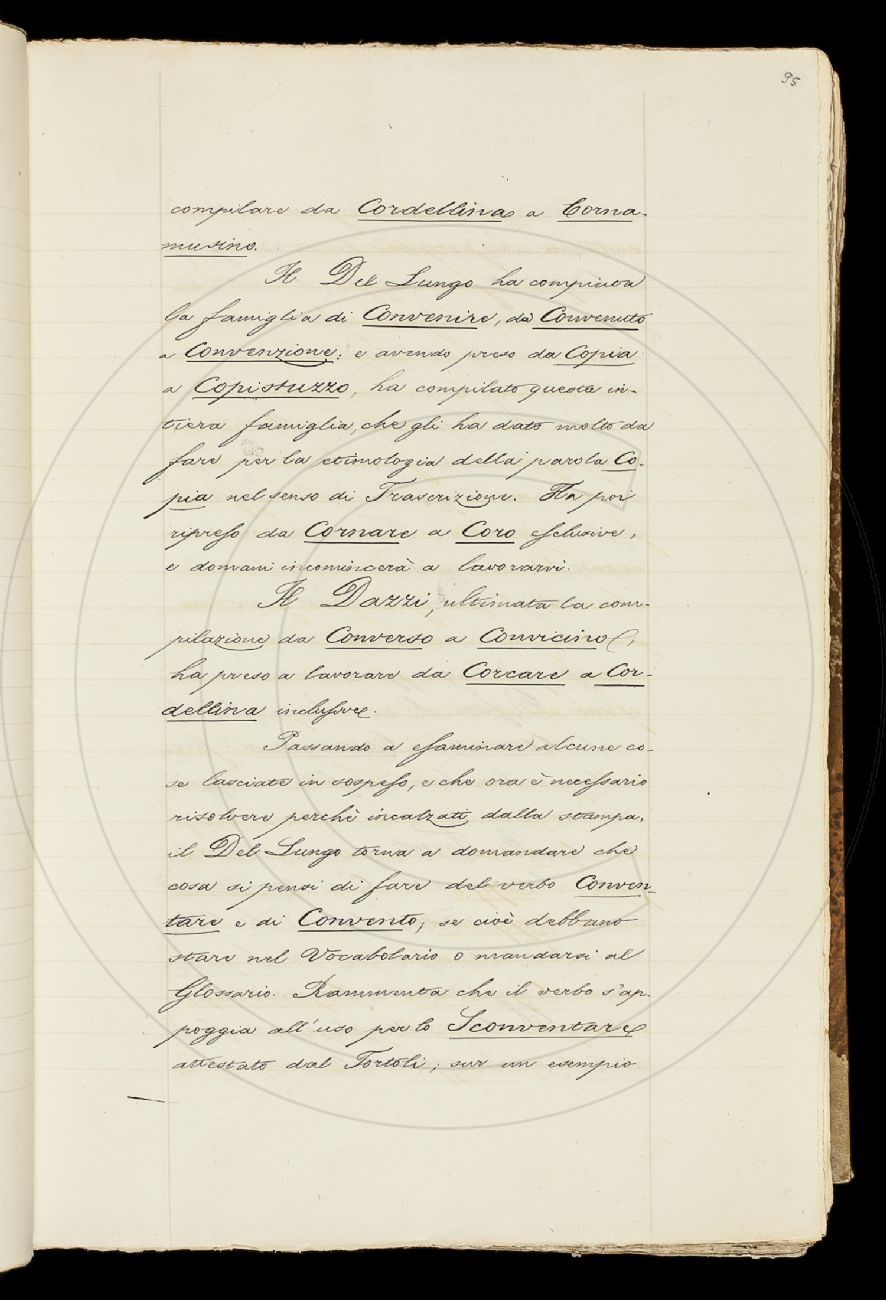 95
compilare da Cordellina a Corna-
musino.
Il Del Lungo ha compiuta
la famiglia di Convenire, da Convenuto
a Convenzione; e avendo preso da Copia
a Copistuzzo, ha compilato questa in-
tiera famiglia, che gli ha dato molto da
fare per la etimologia della parola Co-
pia nel senso di Trascrizione. Ha poi
ripreso da Cornare a Coro esclusive,
e domani incomincerà a lavorarvi.
Il Dazzi, ultimata la com-
pilazione da Converso a Convicino,
ha preso a lavorare da Corcare a Cor-
dellina inclusive.
Passando a esaminare alcune co-
se lasciate in sospeso, e che ora è necessario
risolvere perchè incalzati dalla stampa,
il Del Lungo torna a domandare che
cosa si pensi di fare del verbo Conven-
tare e di Convento; se cioè debbano
stare nel Vocabolario o mandarsi al
Glossario. Rammenta che il verbo s'ap-
poggia all'uso per lo Sconventare
attestato dal Tortoli; sur un esempio